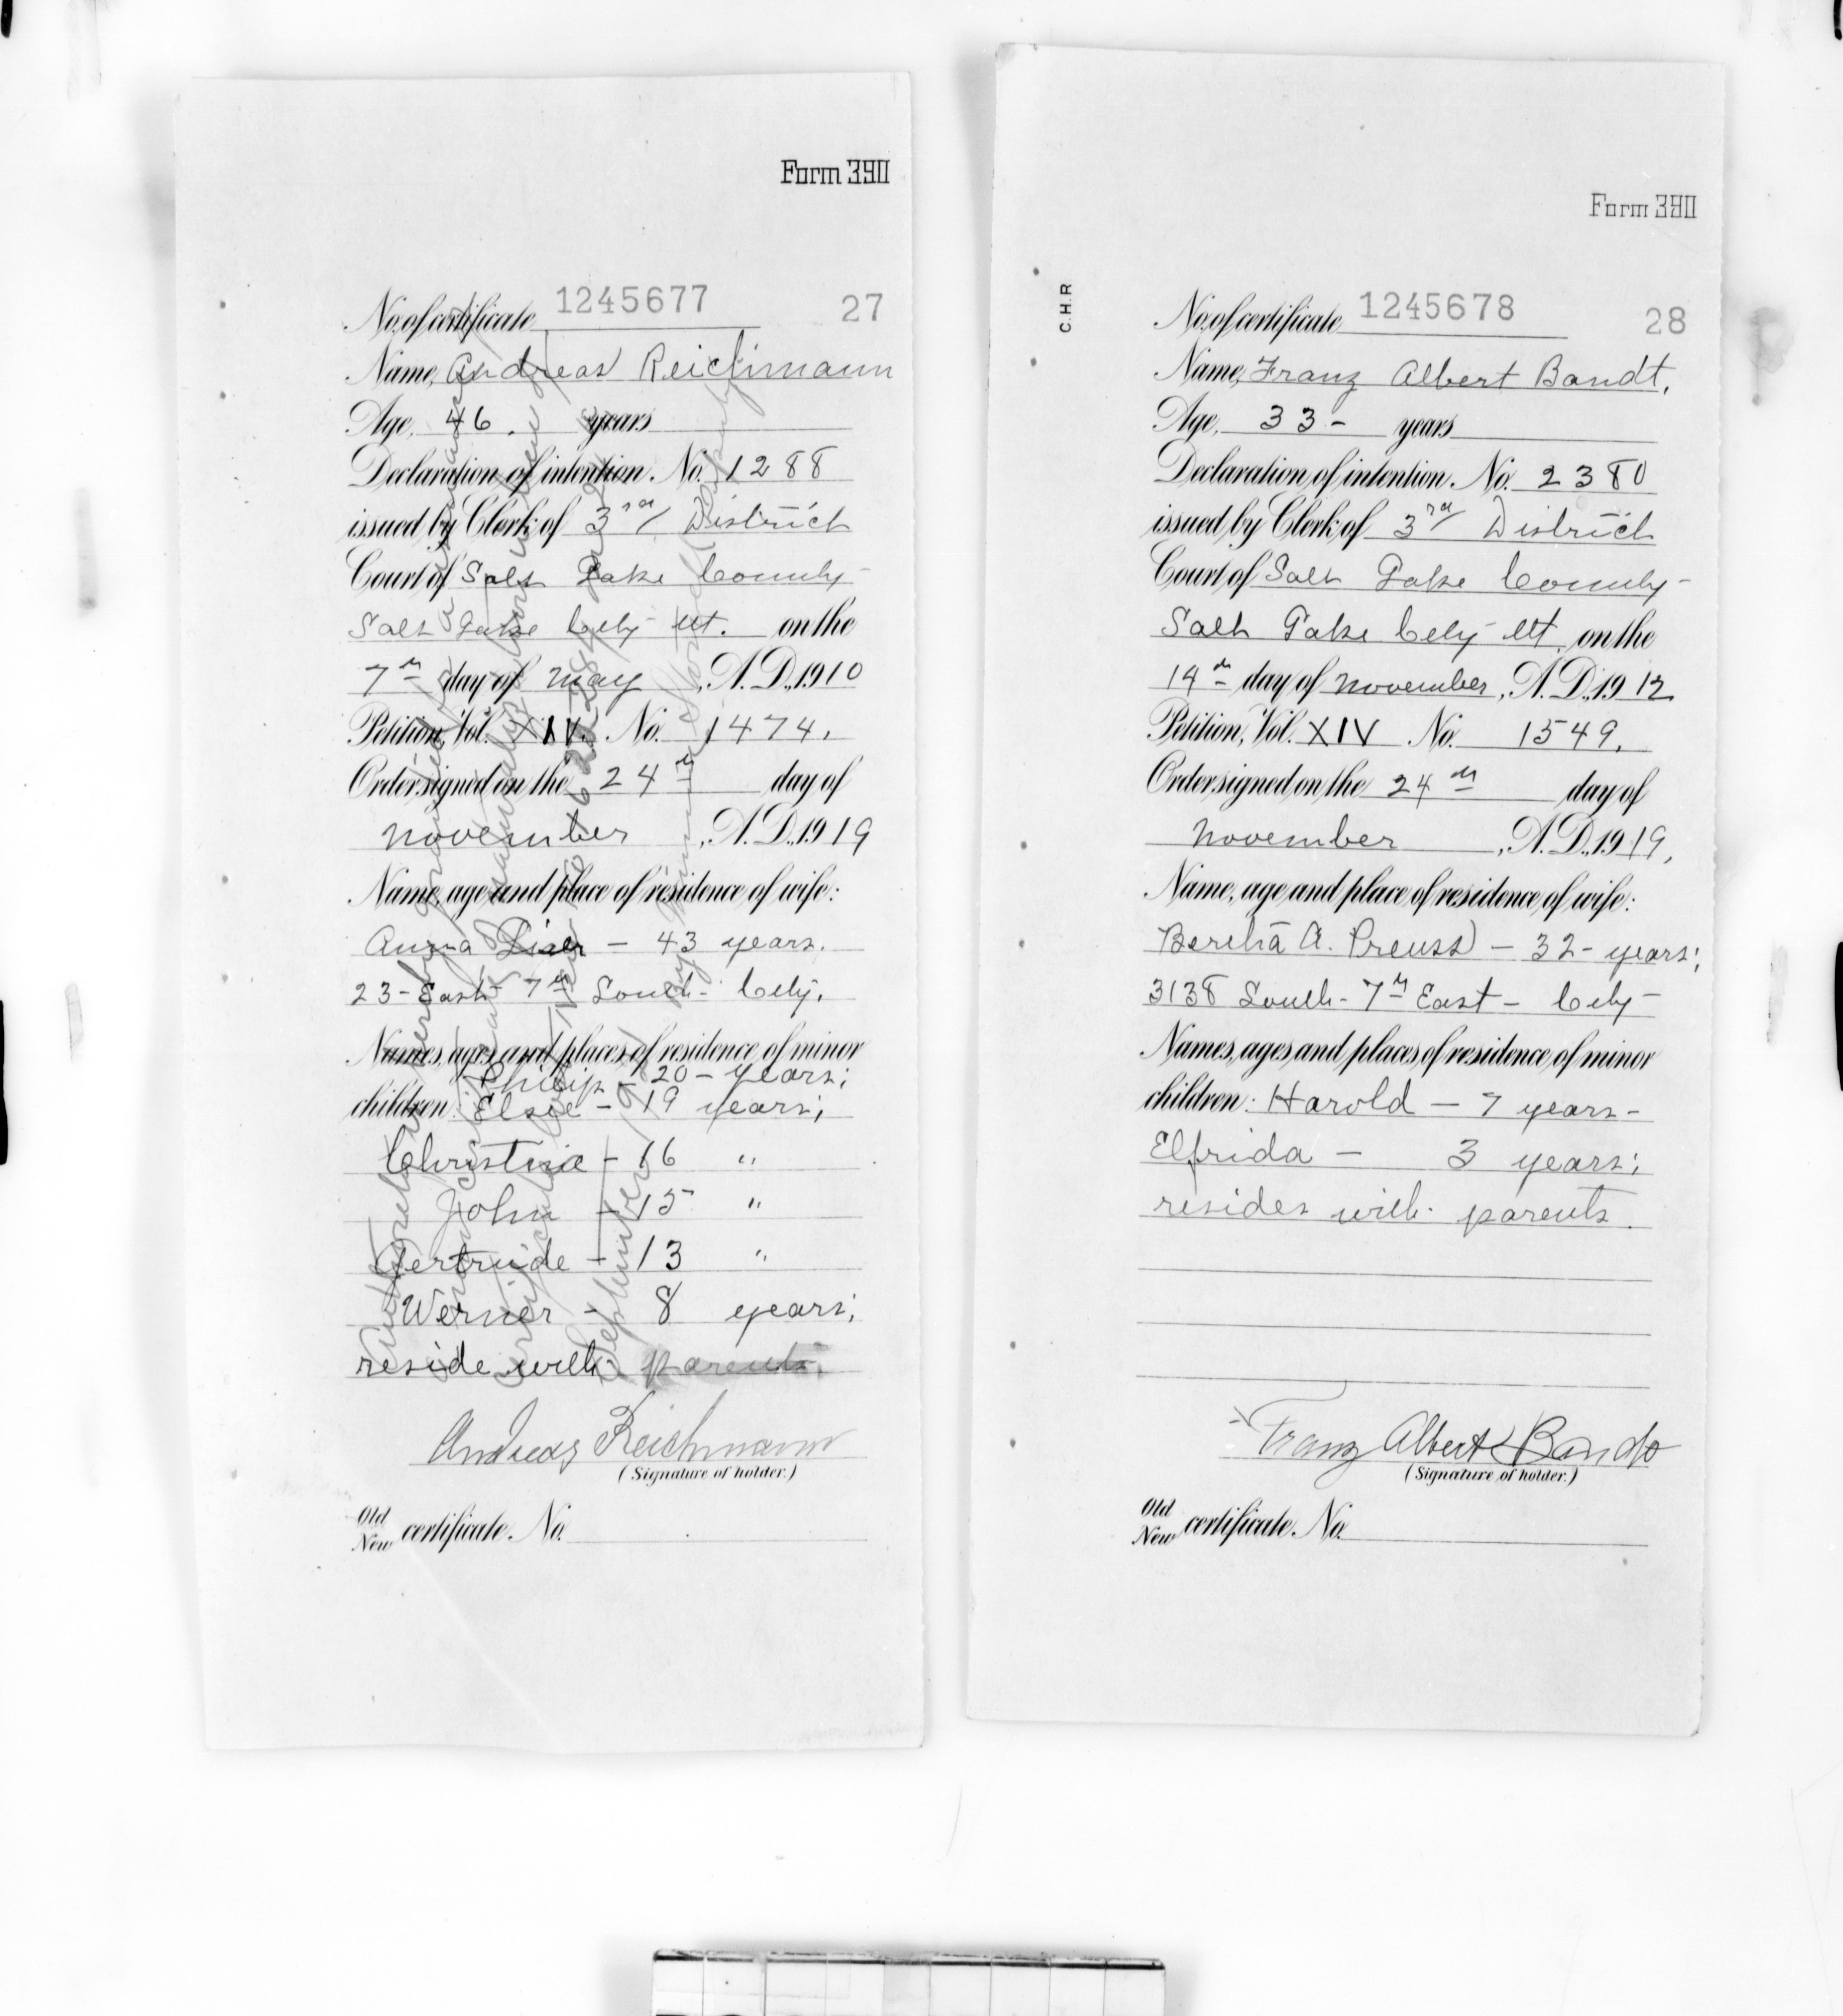 Form 390
No. of certificate 1245677 27
Name, Andreas Reichmann
Age, 46. years
Declaration of intention. No. 1288
issued by Clerk of 3rd District
Court of Salt Lake County-
Salt Lake City Ut. on the
7th day of May, A.D., 1910
Petition, Vol. XIV. No. 1474.
Order signed on the 24th day of
November, A.D., 1919
Name, age and place of residence of wife:
Anna - 43 years.
23-East 7th South- City.
Names, ages and places of residence of minor
Philip - 20 - years;
children: Elsie - 19 years;
Christine - 16 "
John - 15 "
Gertrude - 13 "
Werner - 8 years;
reside with parents.
Andreas Reichmann
(Signature of holder.)
Old
New certificate. No.
Form 390
C.H.R
No. of certificate 1245678 28
Name, Franz Albert Bandt,
Age, 33- years
Declaration of intention. No. 2380
issued by Clerk of 3rd District
Court of Salt Lake County-
Salt Lake City Ut. on the
14th day of November, A.D., 1912
Petition, Vol. XIV No. 1549.
Order signed on the 24th day of
November, A.D., 1919,
Name, age and place of residence of wife:
Bertha A. Preuss - 32- years;
3138 South- 7th East- City-
Names, ages and places of residence of minor
children: Harold - 7 years-
Elfrida - 3 years;
resides with parents.
Franz Albert Bandt
(Signature of holder.)
Old
New certificate. No.